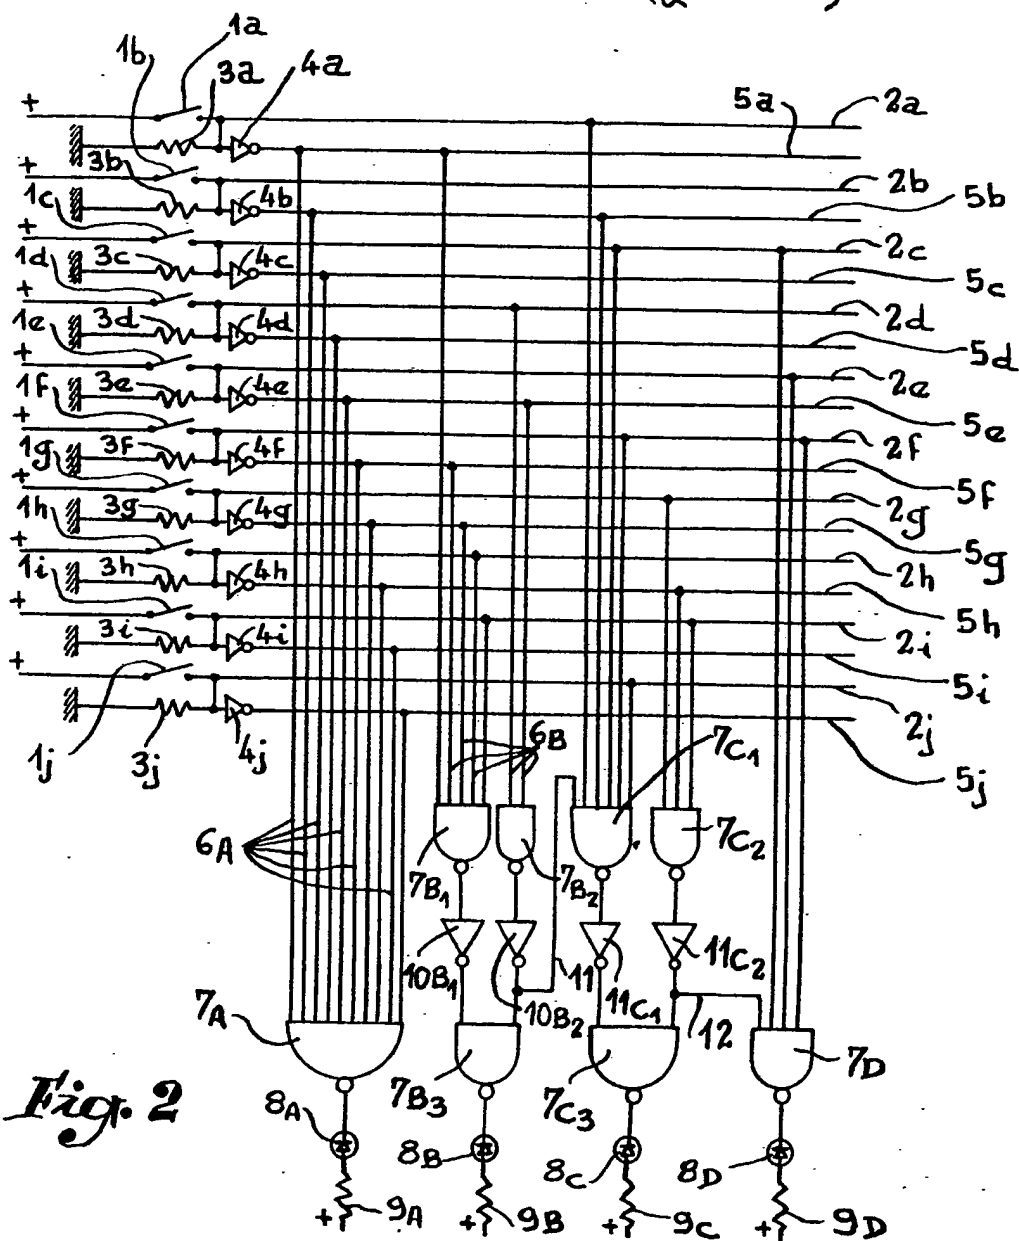 1a
1b
3a
4a
5a
2a
+
3b
+
4b
2b
5b
1c
+
3c
4c
2c
5c
1d
+
3d
4d
2d
5d
1e
+
3e
4e
2e
5e
1f
+
3f
4f
2f
5f
1g
+
3g
4g
2g
5g
1h
+
3h
4h
2h
5h
1i
+
3i
4i
2i
5i
+
1j
3j
4j
2j
5j
6B
7C1
6A
7B1
7B2
7C2
10B1
10B2
11
11C1
11C2
12
7A
7B3
7C3
7D
Fig. 2
8A
8B
8C
8D
+ 9A
+ 9B
+ 9C
+ 9D